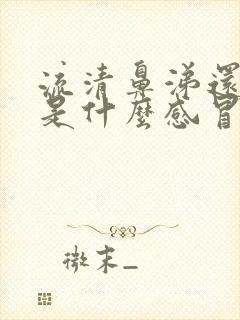 流清鼻涕還
是什麼感冒
微末_